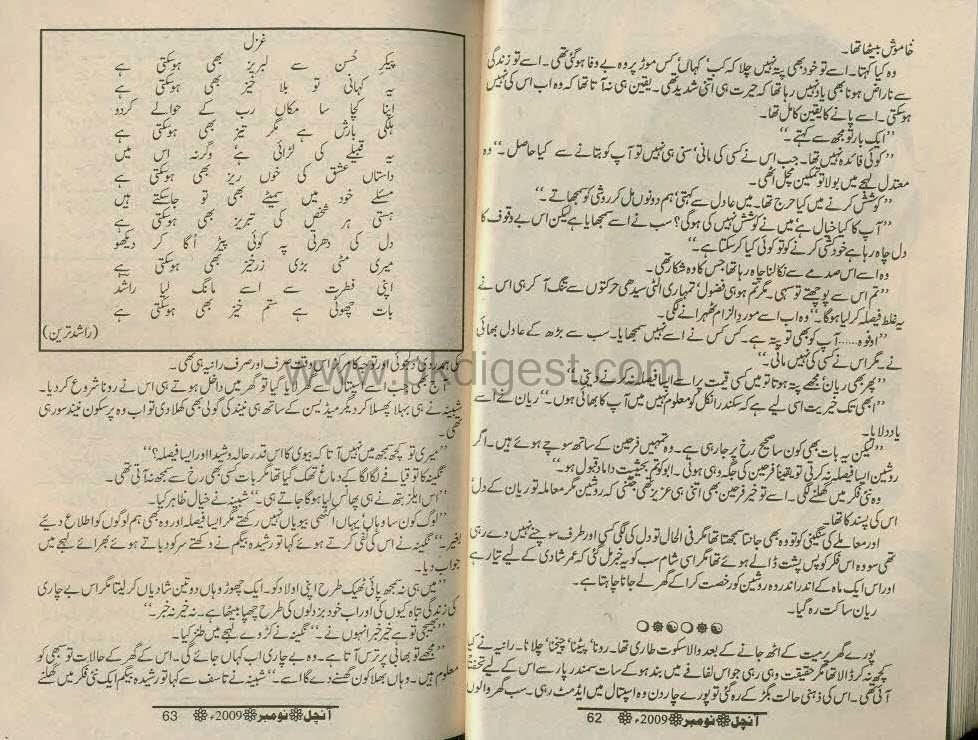 خاموش بیٹھا تھا۔
وہ کیا کہتا۔ اسے تو خود بھی پتہ نہیں چلا کہ کب‘ کہاں‘ کس موڑ پر وہ بے وفا ہوگئی تھی۔ اسے تو زندگی
سے ناراض ہونا بھی یاد نہیں رہا تھا کہ حیرت ہی اتنی شدید تھی۔ یقین ہی نہ آتا تھا کہ وہ اب اس کی نہیں
ہوسکتی۔ اسے پانے کا یقین کامل تھا۔
’’ایک بار تو مجھ سے کہتے۔‘‘
’’کوئی فائدہ نہیں تھا۔ جب اس نے کسی کی مانی‘ سنی ہی نہیں تو آپ کو بتانے سے کیا حاصل۔‘‘ وہ
معتدل لہجے میں بولا تو تمکین مچل اٹھی۔
’’کوشش کرنے میں کیا حرج تھا۔ میں عادل سے کہتی‘ ہم دونوں مل کر روشی کو سمجھاتے۔‘‘
’’آپ کا کیا خیال ہے میں نے کوشش نہیں کی ہوگی؟ سب نے اسے سمجھایا ہے لیکن اس بے وقوف کا
دل چاہ رہا ہے خودکشی کرنے کو تو کوئی کیا کرسکتا ہے۔‘‘
وہ اسے اس صدمے سے نکالنا چاہ رہا تھا جس کا وہ شکار تھی۔
’’تم اس سے پوچھتے تو سہی۔ مگر تم ہو ہی فضول‘ تمہاری الٹی سیدھی حرکتوں سے تنگ آ کر ہی اس نے
یہ غلط فیصلہ کرلیا ہوگا۔‘‘ وہ اب اسے مورد الزام ٹھہرانے لگی۔
’’اوفوہ......آپ کو بھی تو پتہ ہے۔ کس کس نے اسے نہیں سمجھایا۔ سب سے بڑھ کے عادل بھائی
نے۔ مگر اس نے کسی کی نہیں مانی۔‘‘
’’پھر بھی ریان! مجھے پتہ ہوتا تو میں کسی قیمت پر اسے ایسا فیصلہ نہ کرنے دیتی۔‘‘
’’ابھی تک خیریت اسی لیے ہے کہ سکندر انکل کو معلوم نہیں میں آپ کا بھائی ہوں۔‘‘ ریان نے اسے
یاد دلایا۔
’’لیکن یہ بات بھی کون سا صحیح رخ پر جا رہی ہے۔ وہ تمہیں فرحین کے ساتھ سوچے ہوئے ہیں۔ اگر
روشین ایسا فیصلہ نہ کرتی تو یقیناً فرحین کی جگہ وہی ہوتی۔ ابو کو تم بحیثیت داماد قبول ہو۔‘‘
وہ نئی فکر میں گھلنے لگی۔ اسے تو خیر فرحین بھی اتنی ہی عزیز تھی جتنی کہ روشین مگر معاملہ تو ریان کے دل‘
اس کی پسند کا تھا۔
اور معاملے کی سنگینی کو تو وہ بھی جانتا سمجھتا تھا مگر فی الحال تو دل کی لگی کسی اور طرف سوچنے نہیں دے رہی
تھی سو وہ اس فکر کو پس پشت ڈالے ہوئے تھا مگر اسی شام سب کو یہ خبر مل گئی کہ عمر شادی کے لیے تیار ہے
اور اس ایک ماہ کے اندر اندر وہ روشین کو رخصت کرا کے گھر لے جانا چاہتا ہے۔
ریان ساکت رہ گیا۔
پورے گھر پر میت کے اٹھ جانے کے بعد والا سکوت طاری تھا۔ رونا‘ پیٹنا‘ چیخنا‘ چلانا۔ رانیہ نے کیا
کچھ نہ کر ڈالا تھا مگر حقیقت وہی رہی جو اس لفافے میں بند ہو کے سات سمندر پار سے اس کے لیے تحفتاً
آئی تھی۔ اس کی ذہنی حالت بگڑ کے رہ گئی تو پورے چار دن وہ اسپتال میں ایڈمٹ رہی۔ سب گھر والوں
آنچل نومبر 2009ء 62
غزل
پیکرِ حُسن سے لبریز بھی ہوسکتی ہے
یہ کہانی تو بلا خیز بھی ہوسکتی ہے
اپنا کچا سا مکاں رب کے حوالے کردو
ہلکی بارش ہے مگر تیز بھی ہوسکتی ہے
یہ قبیلے کی لڑائی ہے‘ وگرنہ اس میں
داستاں عشق کی خوں ریز بھی ہوسکتی ہے
مسئلے خود میں سمیٹے بھی تو جاسکتے ہیں
ہستی ہر شخص کی تبریز بھی ہوسکتی ہے
دل کی دھرتی پہ کوئی پیڑ اُگا کر دیکھو
میری مٹی بڑی زرخیز بھی ہوسکتی ہے
اپنی فطرت سے اسے مانگ لیا راشد
بات چھوٹی ہے ستم خیز بھی ہوسکتی ہے
(راشد ترین)
کی ہمدردی‘ دلجوئی اور توجہ کا مرکز اس وقت صرف اور صرف رانیہ ہی تھی۔
آج بھی جب اسے اسپتال سے گھر لایا گیا تو گھر میں داخل ہوتے ہی اس نے رونا شروع کردیا۔
شبینہ نے ہی بہلا پھسلا کر دیگر میڈیسن کے ساتھ ہی نیند کی گولی بھی کھلا دی تو اب وہ پرسکون نیند سو رہی
تھی۔
’’میری تو کچھ سمجھ میں نہیں آتا کہ بیوی کا اس قدر حوالہ وشیدا اور ایسا فیصلہ؟‘‘
نگینہ کا تو قیافے لگا لگا کے دماغ تھک گیا تھا مگر بات کسی بھی رخ سے سمجھ نہ آتی تھی۔
’’اس ایلزبتھ نے ہی پھانس لیا ہوگا جاتے ہی۔‘‘ شبینہ نے خیال ظاہر کیا۔
’’لوگ کون سا وہاں‘ یہاں اکٹھی بیویاں نہیں رکھتے مگر ایسا فیصلہ اور وہ بھی ہم لوگوں کو اطلاع دیئے
بغیر۔‘‘ نگینہ نے اس کی نفی کرتے ہوئے کہا تو رشیدہ بیگم نے دکھتے سر کو دباتے ہوئے بھرائے لہجے میں
جواب دیا۔
’’میں ہی نہ سمجھ پائی ٹھیک طرح اپنی اولاد کو۔ ایک چھوڑ وہاں دو تین شادیاں کرلیتا مگر اس بے چاری
کی زندگی تباہ کیوں کی اور اب خود بزدلوں کی طرح چھپا بیٹھا ہے۔ نہ خیر نہ خبر۔‘‘
’’بھیجی تو ہے خیر خبر انہوں نے۔‘‘ نگینہ نے کڑوے لہجے میں طنز کیا۔
’’مجھے تو بھابی پر ترس آتا ہے۔ وہ بے چاری اب کہاں جائے گی۔ اس کے گھر کے حالات تو سبھی کو
معلوم ہیں۔ وہاں بھلا کون گھسنے دے گا اسے۔‘‘ شبینہ نے تاسف سے کہا تو رشیدہ بیگم ایک نئی فکر میں گھلنے
آنچل نومبر 2009ء 63